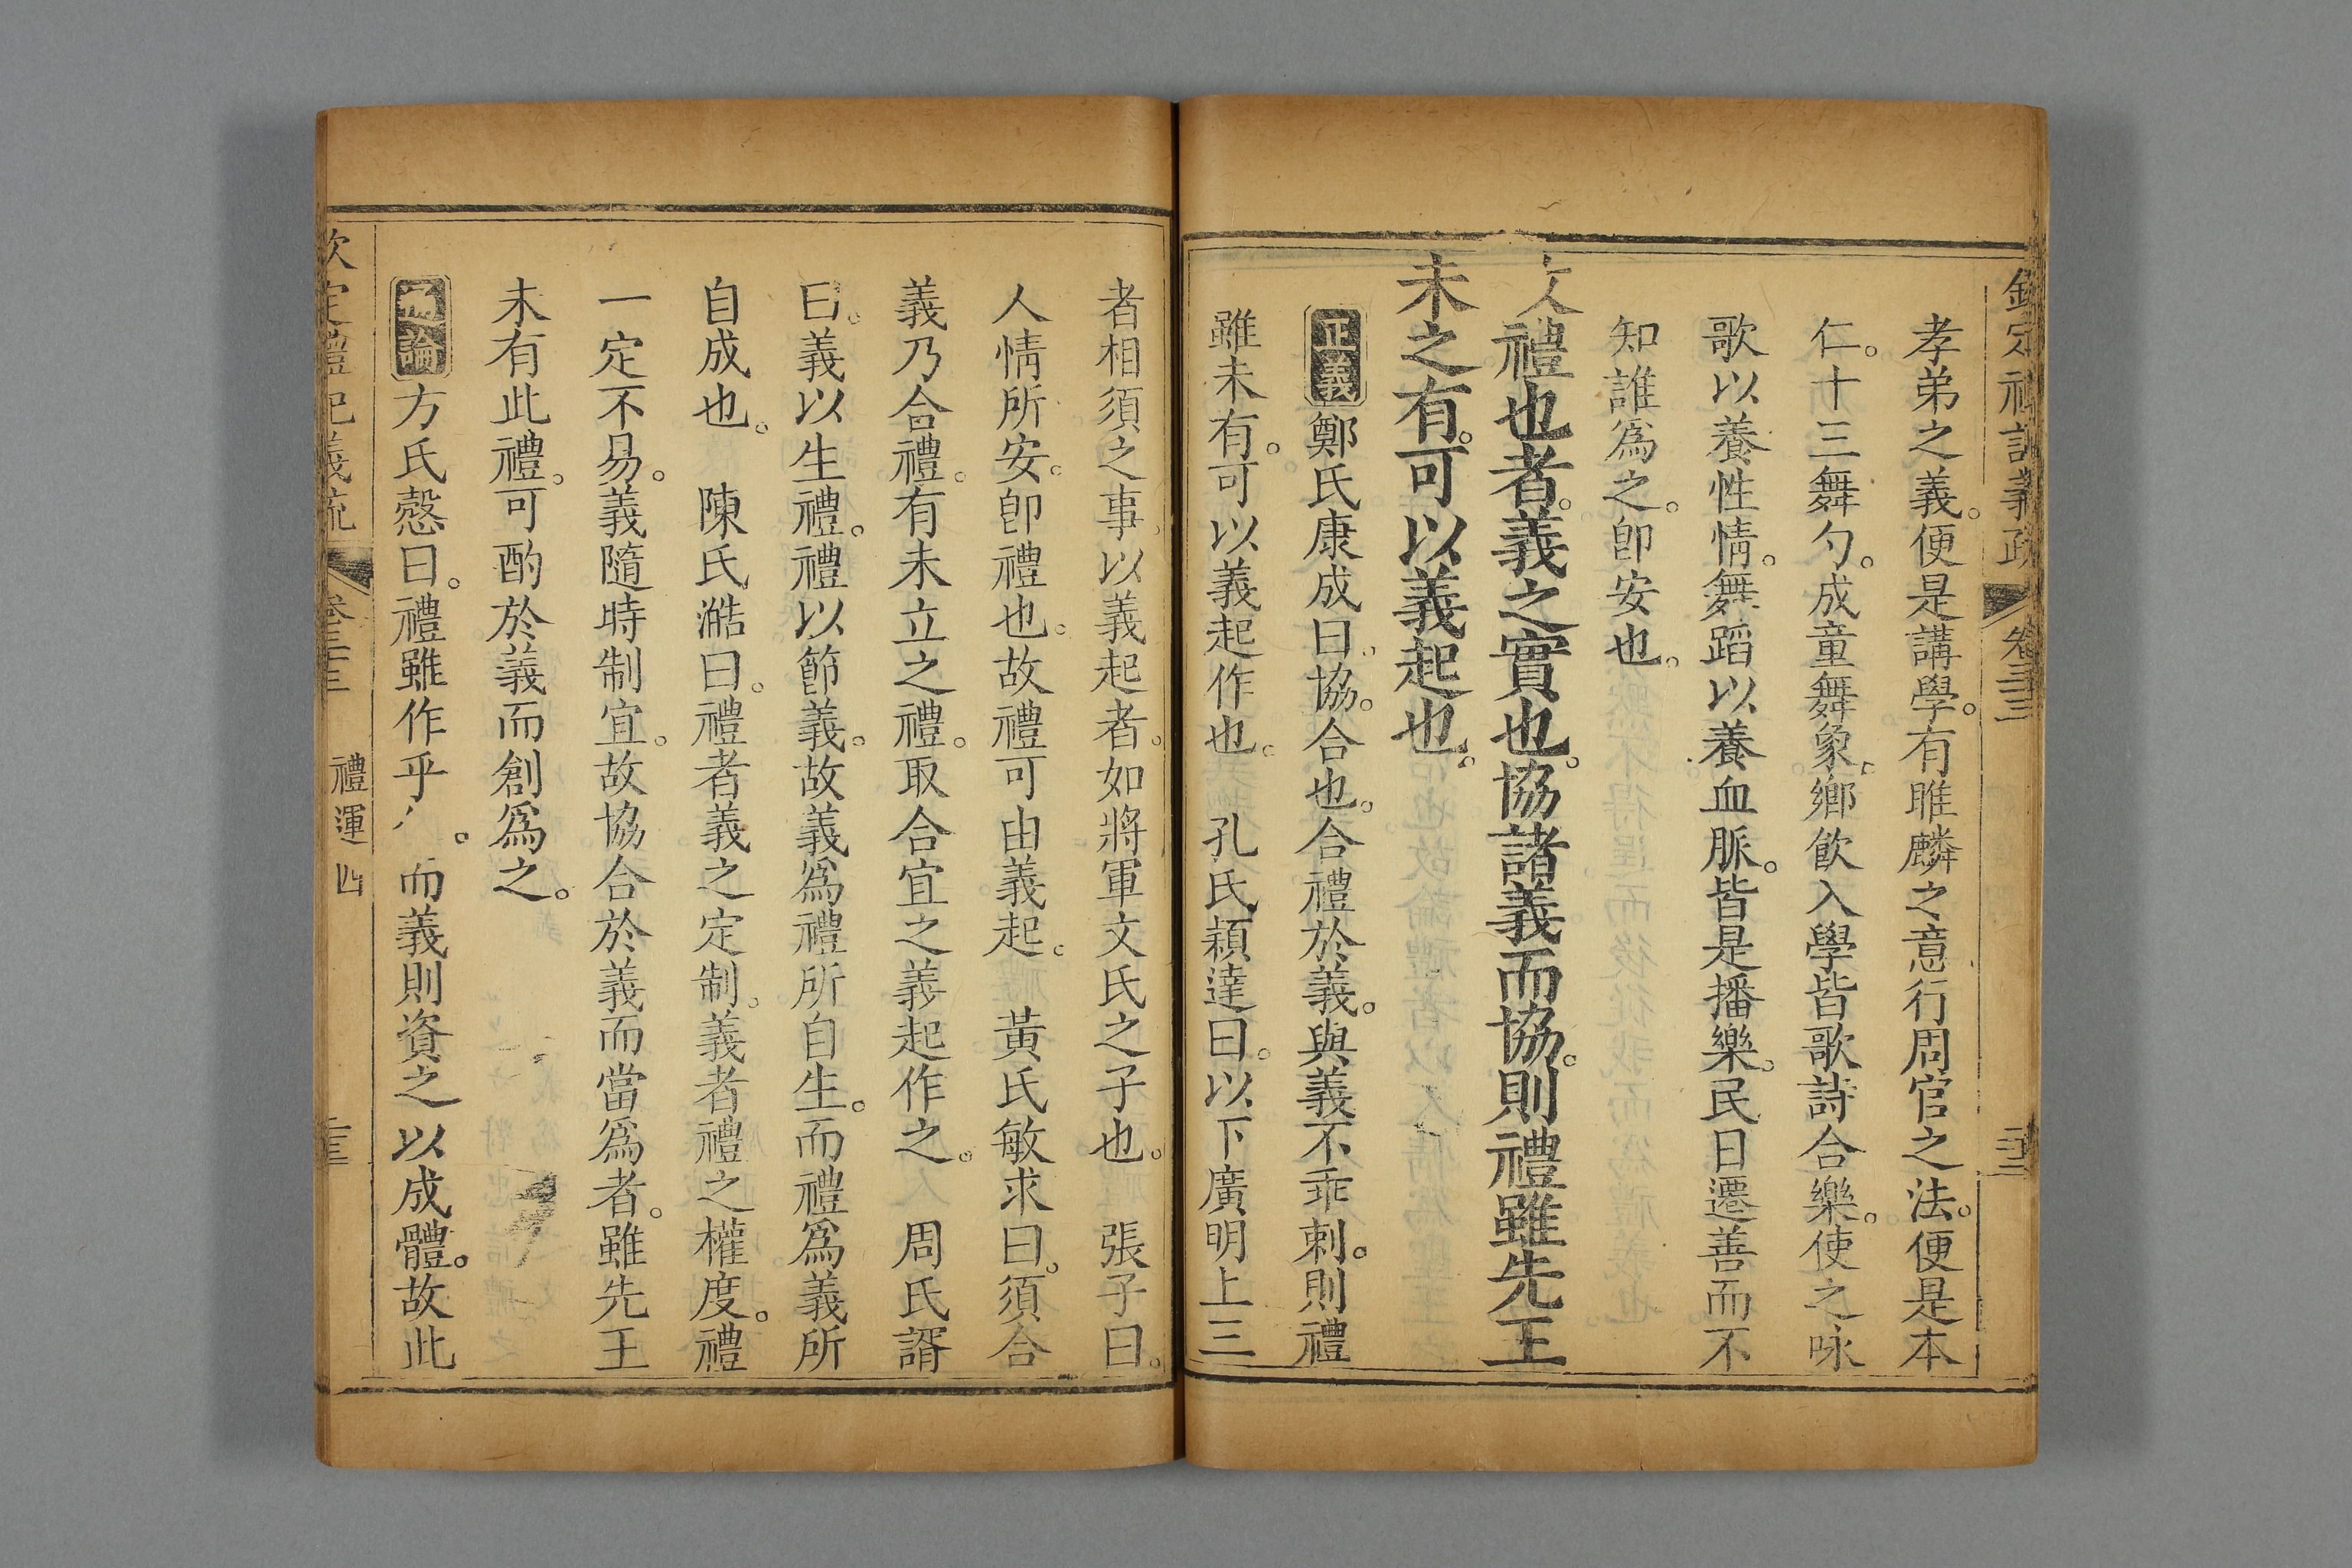 欽定禮記義疏 卷三十三 二十三
孝弟之義。便是講學。有雎麟之意行周官之法。便是本
仁。十三舞勺。成童舞象。鄉飲入學皆歌詩合樂。使之咏
歌以養性情。舞蹈以養血脈。皆是播樂。民日遷善而不
知誰爲之。卽安也。
故禮也者。義之實也。協諸義而協。則禮雖先王
未之有。可以義起也。
正義鄭氏康成曰。協。合也。合禮於義。與義不乖剌。則禮
雖未有。可以義起作也。 孔氏穎達曰。以下廣明上三
者相須之事。以義起者。如將軍文氏之子也。 張子曰。
人情所安。卽禮也。故禮可由義起。 黃氏敏求曰。須合
義乃合禮。有未立之禮。取合宜之義起作之。 周氏諝
曰。義以生禮。禮以節義。故義爲禮所自生。而禮爲義所
自成也。 陳氏澔曰。禮者義之定制。義者禮之權度。禮
一定不易。義隨時制宜。故協合於義而當爲者。雖先王
未有此禮。可酌於義而創爲之。
通論方氏慤曰。禮雖作乎 。而義則資之以成體。故此
欽定禮記義疏 卷三十三 禮運四